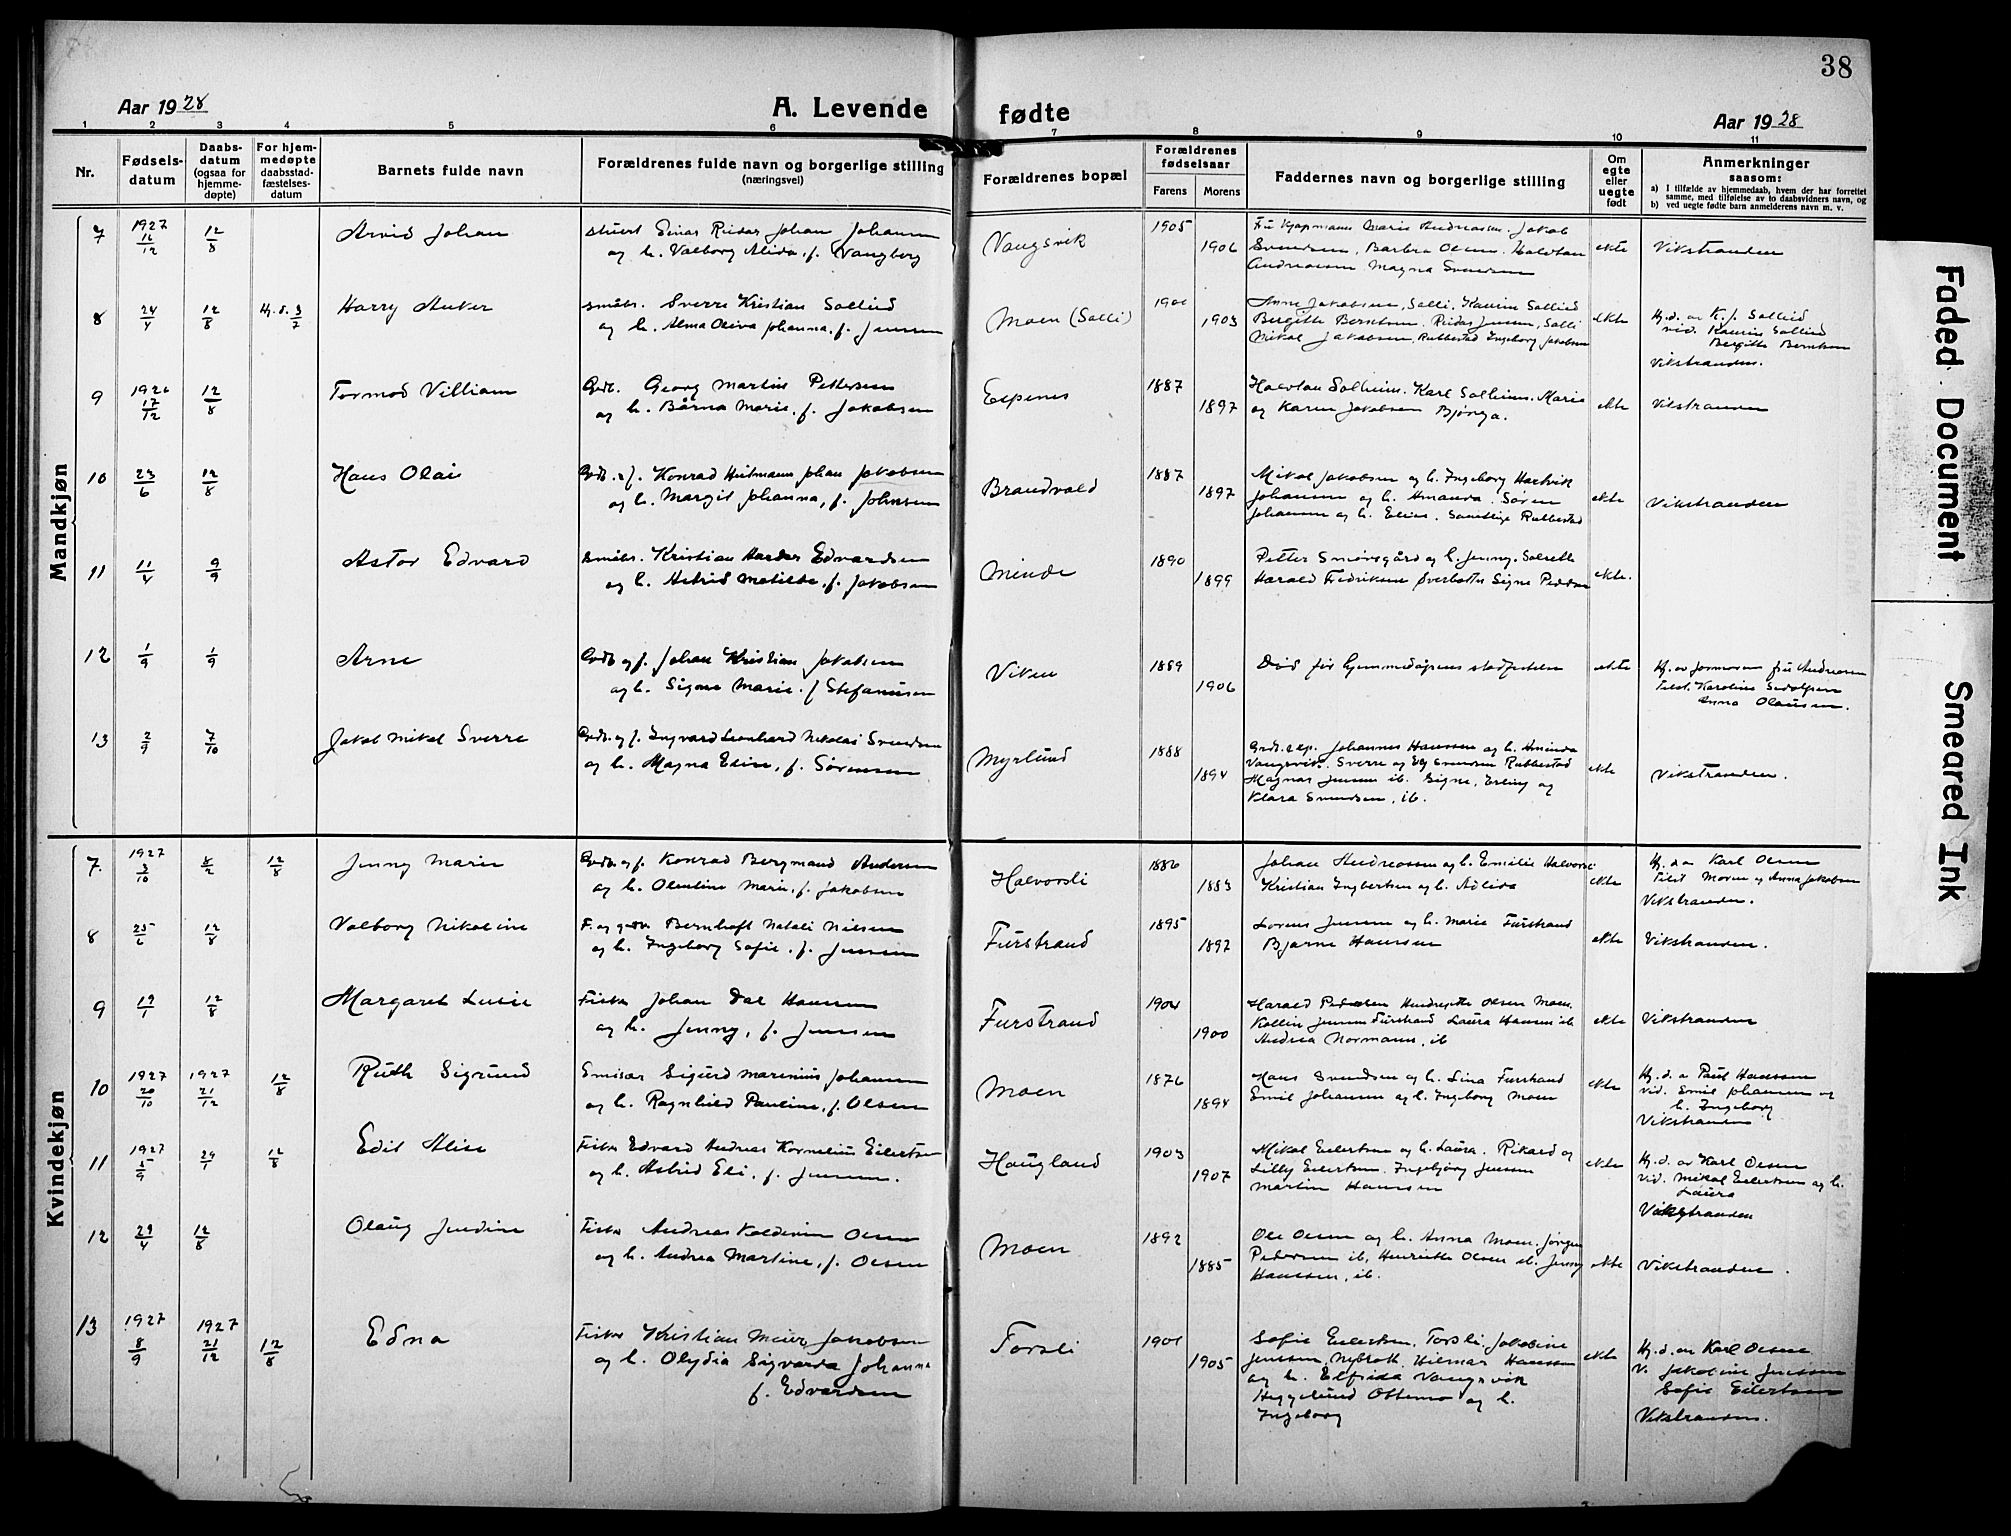 38
Aar 1928
A. Levende fødte
Aar 1928
1 2 3 4 5 6 7 8 9 10 11
Nr.
Fødsels-
datum
Daabs-
datum
(ogsaa for
hjemme-
døpte)
For hjem-
medøpte
daabsstad-
fæstelses-
datum
Barnets fulde navn
Forældrenes fulde navn og borgerlige stilling
(næringsvei)
Forældrenes bopæl
Forældrenes
fødselsaar
Farens Morens
Faddernes navn og borgerlige stilling
Om
egte
eller
uegte
født
Anmerkninger
saasom:
a) I tilfælde av hjemmedaab, hvem der har forrettet
samme, med tilføielse av to daabsvidners navn, og
b) ved uegte fødte barn anmelderens navn m. v.
Mandkjøn
7 1927 16/12 12/8 Arvid Johan
stuert Einar Reidar Johan Johansen
og h. Valborg Alida, f. Vangberg
Vangsvik 1905 1906
Marie Andreassen. Jakob
Svendsen, Barbra Olsen. Halvdan
Andreassen Magna Svendsen
ekte Vikstranden
8 24/4 12/8 Hj. d. 3/7 Harry Anker
småbr. Sverre Kristian Sollied
og h. Alma Oliva Johanna, f. Jensen
Moen (Solli) 1903
Anne Jakobsen, Solli. Kaurin Sollied
Bergitte Berntsen. Reidar Jensen, Solli
Mikal Jakobsen, Rubbestad Ingeborg Jakobsen
ekte
Hj. d. av K. J. Sollied
vid. Kaurin Sollied
Bergitte Berntsen
Vikstranden.
9 1926 17/12 12/8 Tormod Villiam
Gdbr. Georg Martin Pettersen
og h. Bårna Marie, f. Jakobsen
Espenes 1887 1897
Halvdan Solheim. Karl Solheim. Marie
og Karen Jakobsen Bjorga.
ekte Vikstranden
10 23/6 12/8 Hans Olai
Konrad Hartmann Johan Jakobsen
og h. Margit Johanna, f. Johnsen
Brandvold 1887 1897
Mikal Jakobsen og h. Ingeborg Hartvik
Johansen og h. Amanda. Søren
Johansen og h. Eline. Samtlige Rubbestad
ekte Vikstranden
11 11/4 9/9 Astor Edvard
småbr. Kristian Edvardsen
og h. Astrid Matilde, f. Jakobsen
Minde 1890 1899
Petter Smørsgård og h. Jenny. Solvelt
Harald Fredriksen Øverbotn Signe Pedersen
ekte.
12 1/9 1/9 Arne
Gdbr. og f. Johan Kristian Jakobsen
og h. Signe Marie. f Stefanusen
Viken 1889 1906
Død før hjemmedåpens stadfestelse
ekte
Hj. av jormoren fru Andreasen
Tilst. Karoline
Anna Olausen.
13 2/9 7/10 Jakob Mikal Sverre
Gdbr. og f. Ingvard Leonhard Nikolai Svendsen
og h. Magna Edine, f. Sørensen
Myrlund 1888 1894
Johannes Hanssen og h. Aminda
Vangsvik. Sverre og Svendsen Rubbestad
Magnar Jensen ib. Signe, Erling og
Klara Svendsen, ib.
ekte Vikstranden.
Kvindekjøn
7. 1927 3/10 5/2 12/8 Jenny Marie
Gdbr. og f. Konrad Bergmand Andersen
og h. Olentine Marie, f. Jakobsen
Halvorsli 1886 1883
Johan Andreassen og h. Emilie Halvorsli
Kristian Ingbertsen og h. Adlida
ekte
Hj. d. av Karl Olsen
Tilst Moren og Anna Jakobsen
Vikstranden.
8 25/6 12/8 Valborg Nikoline
F. og gdbr. Bernhoft Natali Nielsen
og h. Ingeborg Sofie, f. Jensen
Furstrand 1895 1897
Lorens Jensen og h. Marie Furstrand
Bjarne Hansen
ekte Vikstranden.
9 19/1 12/8 Margaret Lucie
Fisker Johan Dal Hansen
og h. Jenny, f. Jensen
Furstrand 1904 1900
Harald Pedersen Hendrijette Olsen Moen.
Kollin Jensen Furstrand Laura Hansen ib
Andrea Normann, ib
ekte Vikstranden
10 1927 20/10 1927 21/12 12/8 Ruth Sigrund
Emisær Sigurd Marinius Johansen
og h. Ragnhild Pauline, f. Olsen
Moen 1876 1894
Hans Svendsen og h. Lina Furstrand
Emil Johansen og h. Ingeborg Moen
ekte
Hj. d. a Paul Hanssen
vid. Emil Johansen og
h. Ingeborg
Vikstranden
11 1927 5/9 29/1 12/8 Edit Alise
Fisker Edvard Andreas Kornelius Eilertsen
og h. Astrid Eli, f. Jensen.
Haugland 1903 1907
Mikal Eilertsen og h. Laura. Rikard og
Lilly Eilertsen. Ingebjørg Jensen
Martin Hansen
ekte
Hj. d. av Karl Olsen
vid. Mikal Eilertsen og h.
Laura
Vikstranden
12 29/4 12/8 Olaug Jendine
Fisker Andreas Kaldevin Olsen
og h. Andrea Martine, f. Olsen
Moen 1892 1885
Ole Olsen og h. Anna Moen. Jørgen
Pedersen ib, Henriette Olsen ib. Jenny
Hanssen, ib.
ekte Vikstranden.
13 1927 8/9 1927 21/12 12/8 Edna
Fisker Kristian Meier Jakobsen
og h. Olydia Sigvarda Johanna
f. Edvardsen
Forsli 1901 1905
Sofie Eilertsen, Forsli, Jakobine
Jenssen, Nybrott. Hilmar Hanssen
og h. Elfrida Vangsvik
Hyggelund Ottemo og h.
Ingeborg
ekte
Hj. d. av Karl Olsen
V. Jakobine Jenssen
Sofie Eilertsen
Vikstranden.
Faded Document
Smeared Ink